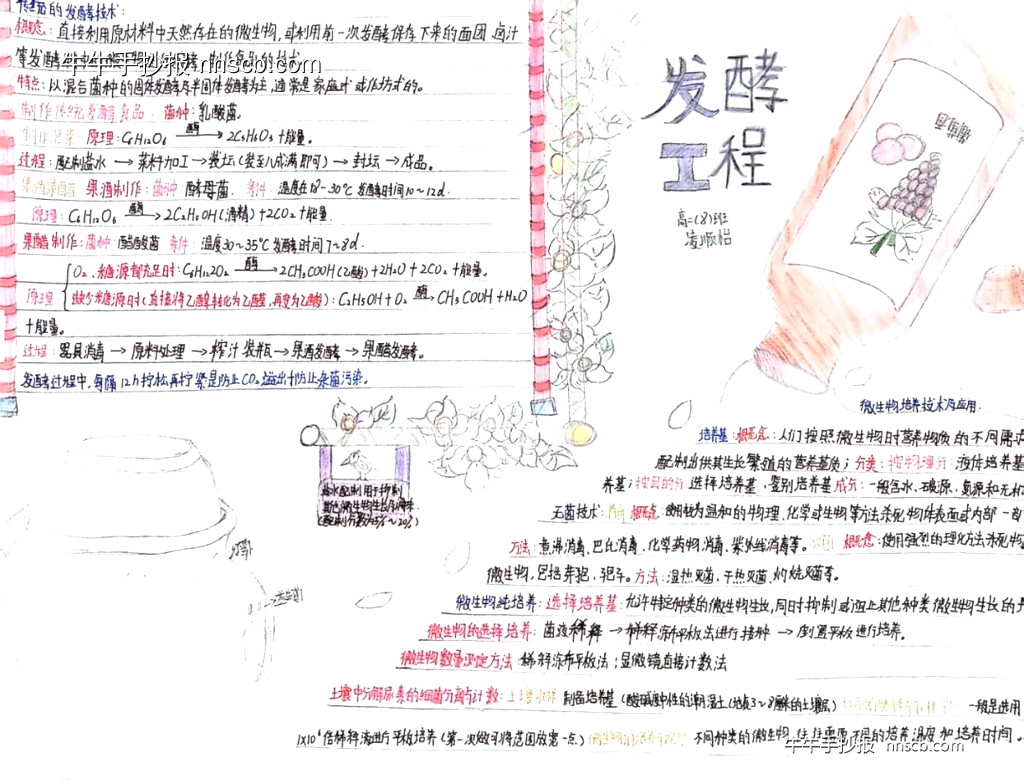 传统的发酵技术:
概念: 直接利用原材料中天然存在的微生物, 或利用前一次发酵保存下来的面团、卤汁
等发酵
牛牛手抄报 nnscb.com
特点: 以混合菌种的固体发酵及半固体发酵为主, 通常是家庭式或作坊式的。
制作传统发酵食品 菌种: 乳酸菌。
制作泡菜 原理: C₆H₁₂O₆ 酶→ 2C₃H₆O₃ + 能量。
过程: 配制盐水 → 菜料加工 → 装坛(装至八成满即可) → 封坛 → 成品。
果酒果醋 果酒制作: 菌种 酵母菌. 条件: 温度在18-30℃ 发酵时间10~12d.
原理: C₆H₁₂O₆ 酶→ 2C₂H₅OH(酒精)+2CO₂+能量.
果醋制作: 菌种 醋酸菌 条件: 温度30~35℃ 发酵时间7~8d.
原理
O₂、糖源都充足时: C₆H₁₂O₂ 酶→ 2CH₃COOH(乙酸)+2H₂O+2CO₂+能量。
缺少糖源时(直接将乙醇转化为乙醛, 再变为乙酸): C₂H₅OH+O₂ 酶→ CH₃COOH+H₂O
+能量。
过程: 器具消毒 → 原料处理 → 榨汁装瓶 → 果酒发酵 → 果醋发酵。
发酵过程中, 每隔12h拧松再拧紧是防止CO₂溢出+防止杂菌污染。
发酵
工程
高二(8)班
凌顺怡
葡萄酒
盐水配制用于抑制
(配制分数为5%~20%)
微生物培养技术及应用.
培养基: 概念: 人们按照微生物对营养物质的不同需求
配制出供其生长繁殖的营养基质; 分类: 按物理分 液体培养基
养基; 按目的分 选择培养基、鉴别培养基 成分: 一般含水、碳源、氮源和无机
无菌技术: 消毒 概念: 使用较为温和的物理、化学或生物等方法杀死物体表面或内部一部
方法: 煮沸消毒、巴氏消毒、化学药物消毒、紫外线消毒等。 概念: 使用强烈的理化方法杀死物
微生物, 包括芽孢、孢子。方法: 湿热灭菌、干热灭菌、灼烧灭菌等。
微生物纯培养: 选择培养基: 允许特定种类的微生物生长, 同时抑制或阻止其他种类微生物生长的
微生物的选择培养: 菌液稀释 → 稀释涂布平板法进行接种 → 倒置平板进行培养。
微生物数量测定方法 稀释涂布平板法; 显微镜直接计数法
土壤中分解尿素的细菌分离与计数: 土壤取样 制备培养基 (酸碱度中性的潮湿土(地表3~8厘米的土壤层) 一般是选用
1×10⁶倍稀释液进行平板培养(第一次做可将范围放宽一点) 不同种类的微生物, 往往需要不同的培养温度和培养时间。
牛牛手抄报 nnscb.com